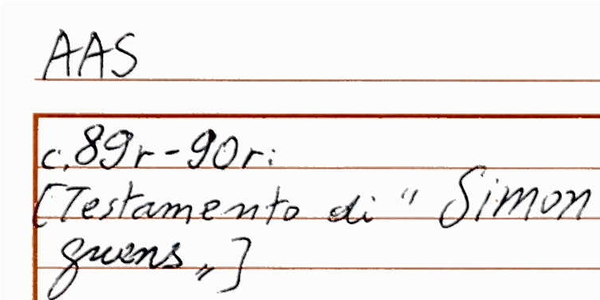 AAS
c. 89r-90r:
[Testamento di "Simon
guens"]